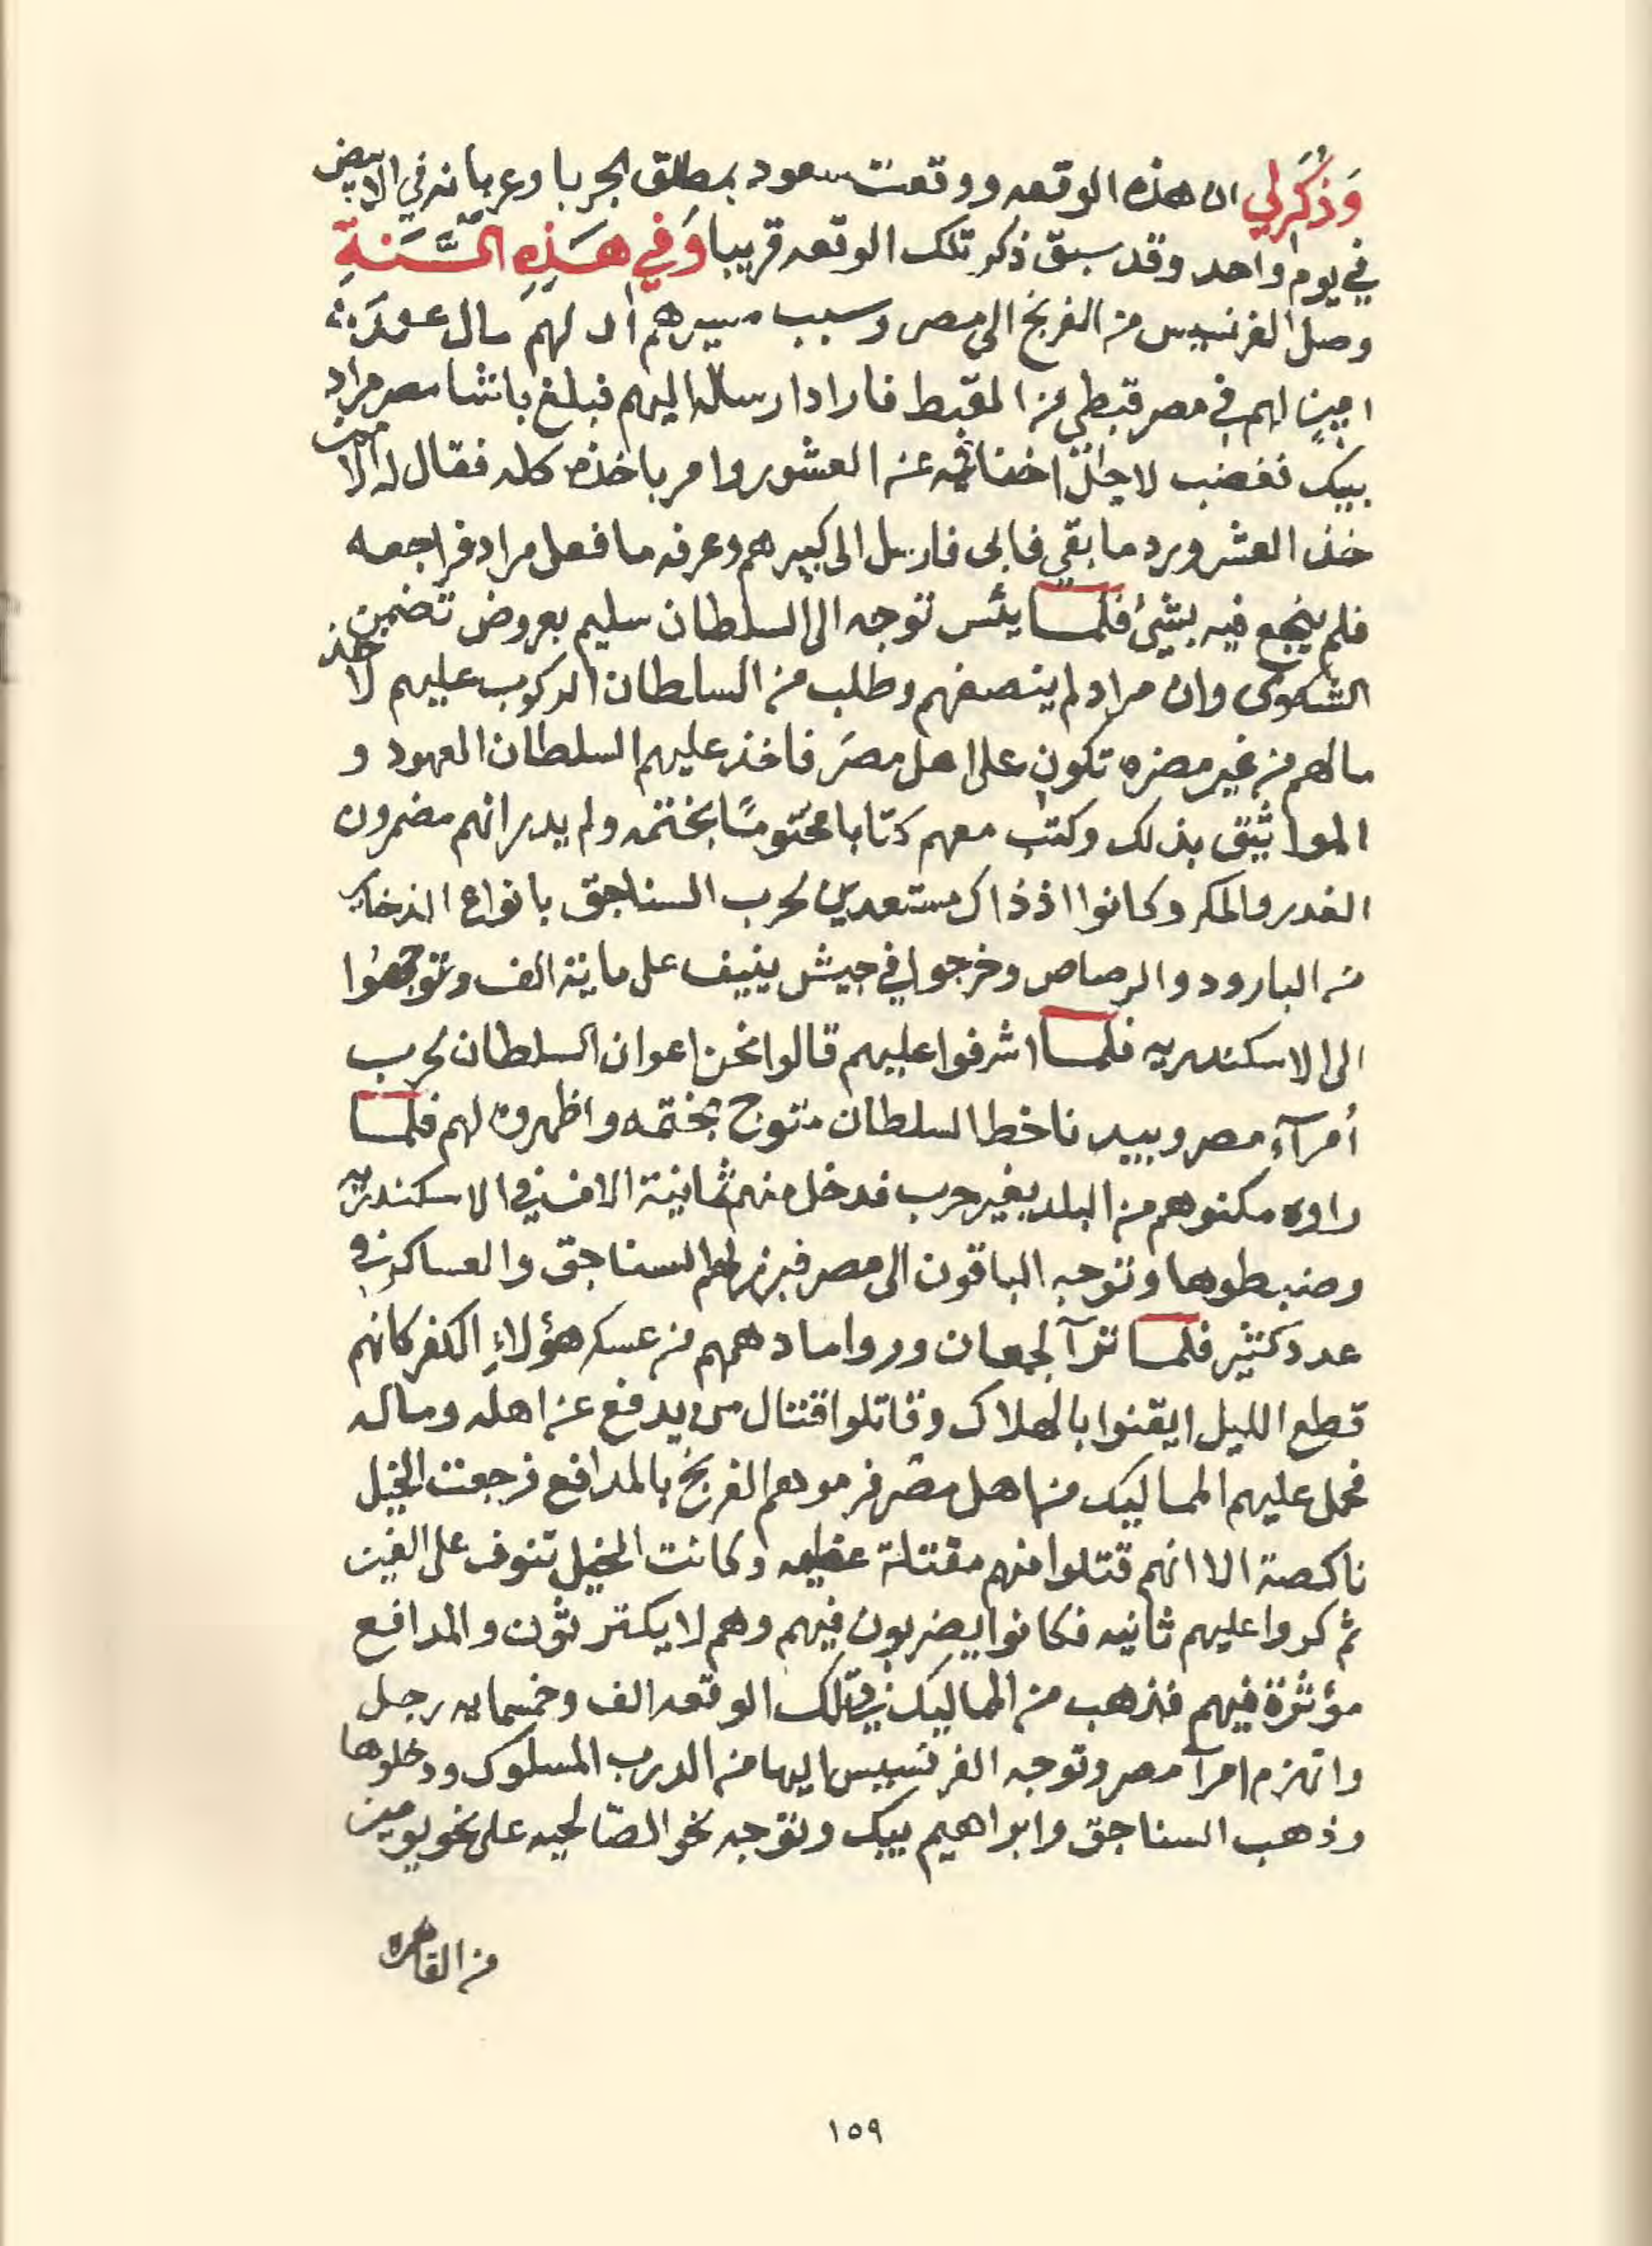 وَذُكِرَ لي ان هذه الوقعه ووقعت سعود بمطلق الجربا وعربانه في الابيض
في يوم واحد وقد سبق ذكر تلك الوقعه قريبا وَفي هَذِهِ السَّنَةِ
وصل الفرنسيس من الفرنج الى مصر وسبب مسيرهم ان لهم مال عند
امينٍ لهم في مصر قبطي من القبط فاراد ارساله اليهم فبلغ باشا مصر مراد
بيك فغضب لاجل اخفائه عن العشور وامر باخذه كله فقال له الامين
خذ العشر ورد ما بقي فابى فارسل الى كبيرهم وعرفه ما فعل مراد فراجعه
فلم ينجع فيه بشئ فلما يئس توجه الى السلطان سليم بعروض تضمن
الشكوى وان مراد لم ينصفهم وطلب من السلطان الركوب عليهم لاخذ
مالهم من غير مضره تكون على اهل مصر فاخذ عليهم السلطان العهود و
المواثيق بذلك وكتب معهم كتابا مختومًا بختمه ولم يدر انهم مضمرون
الغدر والمكر وكانوا اذ ذاك مستعدين لحرب السناجق بانواع الذخاير
من البارود والرصاص وخرجوا في جيش ينيف على ماية الف وتوجهوا
الى الاسكندريه فلما اشرفوا عليهم قالوا نحن اعوان السلطان لحرب
أمرآء مصر وبيدنا خط السلطان متوج بختمه واظهروه لهم فلما
راوه مكنوهم من البلد بغير حرب فدخل منهم ثمانية الاف في الاسكندريه
وضبطوها وتوجه الباقون الى مصر فبرز لهم السناجق والعساكر في
عدد كثير فلما ترآ الجمعان وروا ما دهمهم من عسكر هؤلاءِ الكفر كانهم
قطع الليل ايقنوا بالهلاك وقاتلوا قتال من يدفع عن اهله وماله
فحمل عليهم المماليك من اهل مصر فرموهم الفرنج بالمدافع فرجعت الخيل
ناكصة الا انهم قتلوا منهم مقتلة عظيمه وكانت الخيل تنوف على الفين
ثم كروا عليهم ثانيه فكانوا يضربون فيهم وهم لا يكترثون والمدافع
مؤثرة فيهم فذهب من المماليك في تلك الوقعه الف وخمسمايه رجل
وانهزم امرآ مصر وتوجه الفرنسيس اليها من الدرب المسلوك ودخلوها
وذهب السناجق وابراهيم بيك وتوجه نحو الصّالحيه على نحو يومين
من القاهره
١٥٩